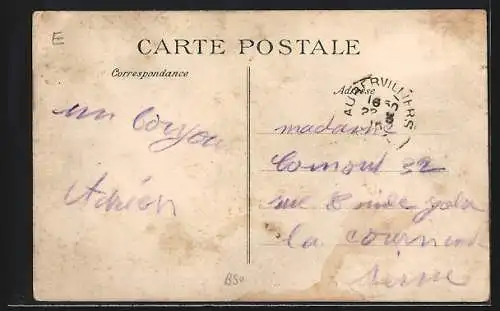 E
CARTE POSTALE
Correspondance
Adresse
AUBERVILLIERS
16
22
un bonjour
Adrien
madame
Comont 32
rue Emile Zola
la Courneuve
Seine
B50